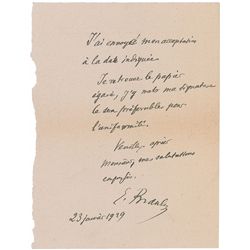 J'ai envoyé mon acceptation
à la date indiquée.
Je retrouve le papier
égaré, j'y mets ma signature
le tout préférable pour
l'uniformité.
Veuillez agréer
Monsieur, mes salutations
empressées.
E.
23 janvier 1929